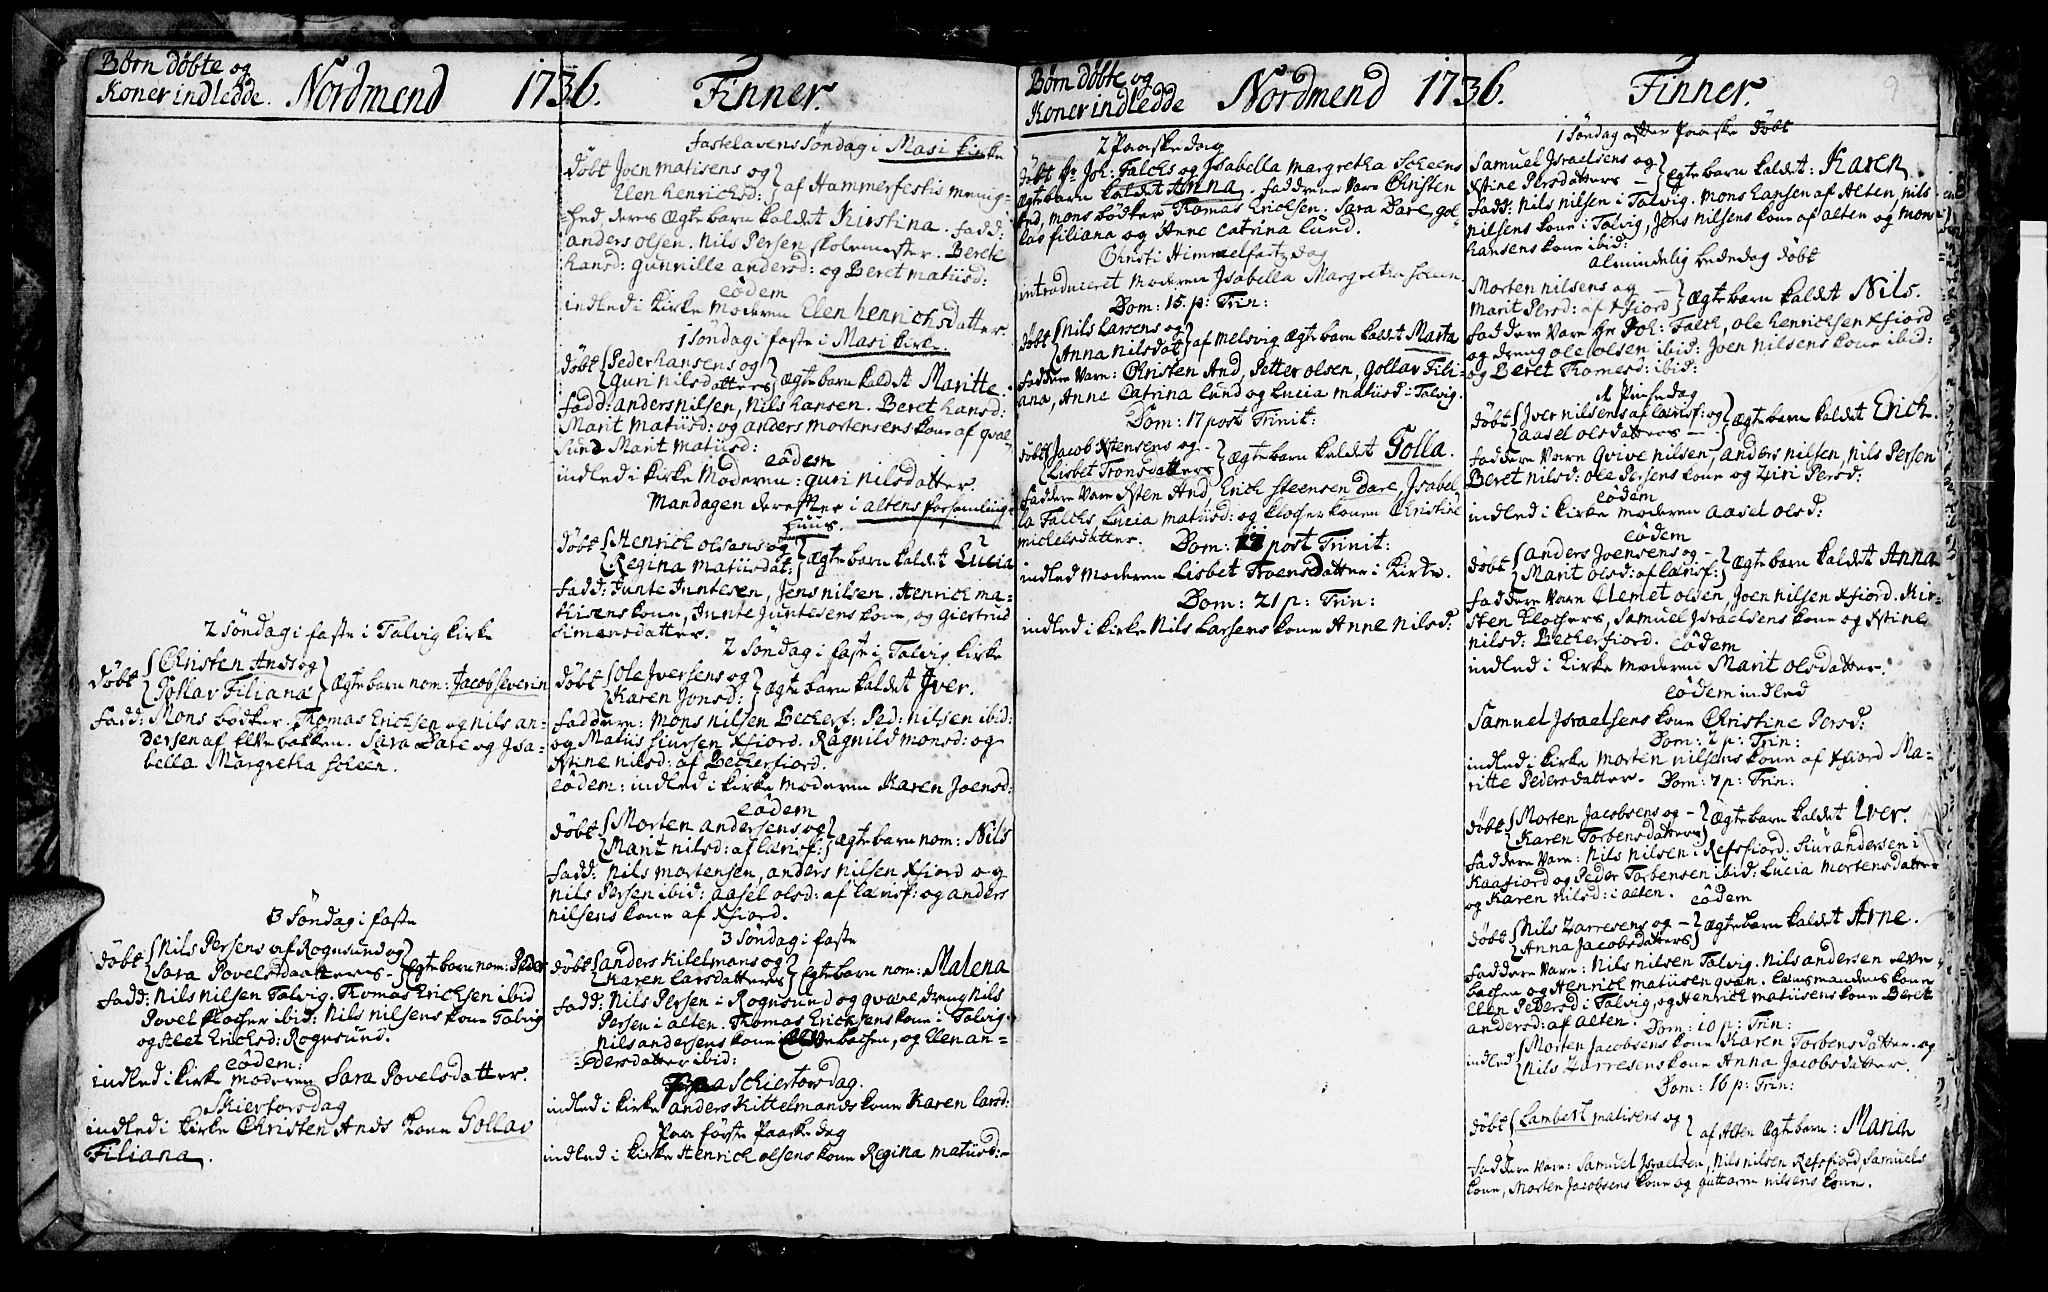 Børn døbte og
Koner indledde. Nordmend 1736. Finner.
2 Søndag i faste i Talvig kirke
døbt Christen Ands og
Gollav Filiana Ægte barn nom: Jacob Severin
fadd: Mons bødker. Thomas Erichsen og nils an-
dersen af Elvebakken. Sara Dare og Isa-
bella Margretha Scheen.
3 Søndag i faste
døbt Nils Persens af Rognsund og
Sara Povelsdaatters Ægte barn nom: Peder
fadd: Nils nilsen Talvig. Thomas Erichsen ibid
Povel klocher ibid: Nils nilsens kone Talvig
og Alet Erichsd: Rognsund.
eôdem:
indled i kirke moderen Sara Povelsdatter.
Skiertorsdag
indled i kirke Christen Ands kone Gollav
Filiana.
fastelavens Søndag i Masi kirke
døbt Joen matisens og
Elen henrichsd: af Hammerfestis menig-
hed deres Ægte barn kaldet Kirstina. fadd:
anders olsen. Nils Persen skolemester. Berete
hansd: gunnille andersd: og Beret matiisd:
eôdem
indled i kirke moderen Elen henrichsdatter.
1 Søndag i faste i Masi kirke.
døbt Peder hansens og
guri nilsdatters Ægte barn kaldet Maritte.
fadd: anders nilsen, Nils hansen. Beret hansd:
Marit matiisd: og anders mortensens kone af qval-
sund Marit matiisd:
eôdem
indled i kirke Moderen: guri nilsdatter.
Mandagen derefter i altens forsamling
huus.
døbt Henrich olsens og
Regina matiisdat: Ægte barn kaldet Lucia
fadd: Junte Juntesen, Jens nilsen. Henrich ma-
tisens kone, Junte Juntesens kone og giertrud
Simensdatter.
2 Søndag i faste i Talvig kirke
døbt Ole Iversens og
Karen Jonsd: Ægte barn kaldet Iver.
faddere: mons nilsen Becherf: Ped: nilsen ibid:
og Matiis siursen Xfiord. Ragnild monsd: og
Xstine nilsd: af Becherfiord:
eôdem: indled i kirke moderen Karen Joensd:
eôdem
døbt Morten andersens og
Marit nilsd: af Lærisf: Ægte barn nom: Nils
fadd: Nils mortensen, anders nilsen Xfiord og
nils Persen ibid: aasel olsd: af Lærisf: og anders
nilsens kone af Xfiord.
3 Søndag i faste
døbt anders kitelmans og
Karen Larsdatters Ægte barn nom: Malena
fadd: Nils Persen i Rognsund og qvæne dreng Nils
Persen i alten. Thomas Erichsens kone i Talvig.
Nils andersens kone i Elvebachen, og Ellen an-
dersdatter ibid:
paa Schiertorsdag.
indled i kirke anders Kittelmands kone Karen Larsd:
Paa første Paaske dag
indled i kirke Henrich olsens kone Regina matiisd:
Børn døbte og
Koner indledde Nordmend 1736. Finner. 9
2 Paaske dag
døbt Hr Joh: Falchs og Isabella margretha Scheens
Ægte barn kaldet Anna. faddere vare Christen
And, mons bødker Thomas Erichsen. Sara Dare, gol-
lav filiana og Anne Catrina Lund.
Christi Himmelfartz dag
introduceret moderen Isabella Margretha Scheen
Dom: 15 p: Trin:
døbt Nils Larsens og
Anna Nilsdat af melsvig Ægte barn kaldet Marta
faddere vare: Christen And, Petter olsen, gollav Fili-
ana, Anne Catrina Lund og Lucia matiisd i Talvig.
Dom: 17 post Trinit:
døbt Jacob Xtensens og
Lisbet Tronsdatters Ægte barn kaldet Golla.
faddere vare Xsten And, Erich Steensen Dare, Isabel-
la Falchs, Lucia matiisd: og klocher konen Christine
michelsdatter.
Dom: 17 post Trinit:
indled moderen Lisbet Troensdatter i kirke.
Dom: 21 p: Trin:
indled i kirke Nils Larsens kone Anne Nilsd:
1 Søndag after Paaske døbt
Samuel Israelsens og
Xstine Persdatters Ægte barn kaldet: Karen
fadd: Nils nilsen i Talvig. Mons hansen af Alten, nils
nilsens kone i Talvig, Jens nilsens kone af alten og mons
hansens kone ibid:
almindelig bededag døbt
Morten nilsens og
Marit Persd: af Xfiord Ægte barn kaldet Nils.
faddere vare Hr Joh: Falch, Ole henrichsen Xfiord
og dreng ole olsen ibid: Joen nilsens kone ibid:
og Beret Thomesd: ibid:
1 Pinsedag
døbt Iver nilsens af Lærisf: og
aasel olsdatters Ægte barn kaldet Erich.
faddere vare Qvive nilsen, anders nilsen, nils Persen
Beret nilsd: ole Persens kone og ziri Persd:
eôdem
indled i kirke moderen aasel olsd:
eôdem
døbt anders Joensens og
Marit olsd: af Lærisf: Ægte barn kaldet Anna
faddere vare Clemet olsen, Joen nilsen Xfiord. Kir-
sten klochers, Samuel Israelsens kone og Xstine
nilsd: Becherfiord. eôdem
indled i kirke moderen Marit olsdatter.
eôdem indled
Samuel Israelsens kone Christine Persd:
Dom: 2 p: Trin:
indled i kirke morten nilsens kone af Xfiord Ma-
ritte Pedersdatter. Dom: 7 p: Trin:
døbt Morten Jacobsens og
Karen Torbensdatters Ægte barn kaldet Iver.
faddere vare: Nils nilsen i Refsfiord. Siur andersen i
Kaafiord og Peder Torbensen ibid: Lucia mortensdatter
og Karen nilsd: i alten. eôdem
døbt Nils Zarresens og
Anna Jacobsdatters Ægte barn kaldet Arne.
faddere vare: Nils nilsen Talvig. Nils andersen elve
bachen og Henrich matiisen qvæn. Lænsmandens kone
Elen Pedersd i Talvig, og Henrich matiisens kone Beret
andersd: af alten. Dom: 10 p: Trin:
indled Morten Jacobsens kone Karen Torbensdatter. og
Nils Zarresens kone Anna Jacobsdatter.
Dom: 16 p: Trin:
døbt Lambert matisens og
af Alten Ægte barn: Maria
faddere vare: Samuel Israelsen, Nils nilsen Refsfiord, Samuels
kone, Morten Jacobsens kone og guttorm nilsens kone.